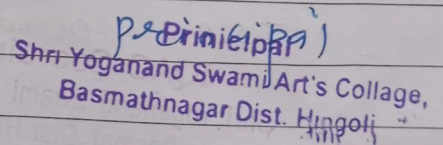 Principal
Shri Yoganand Swami Art's Collage,
Basmathnagar Dist. Hingoli